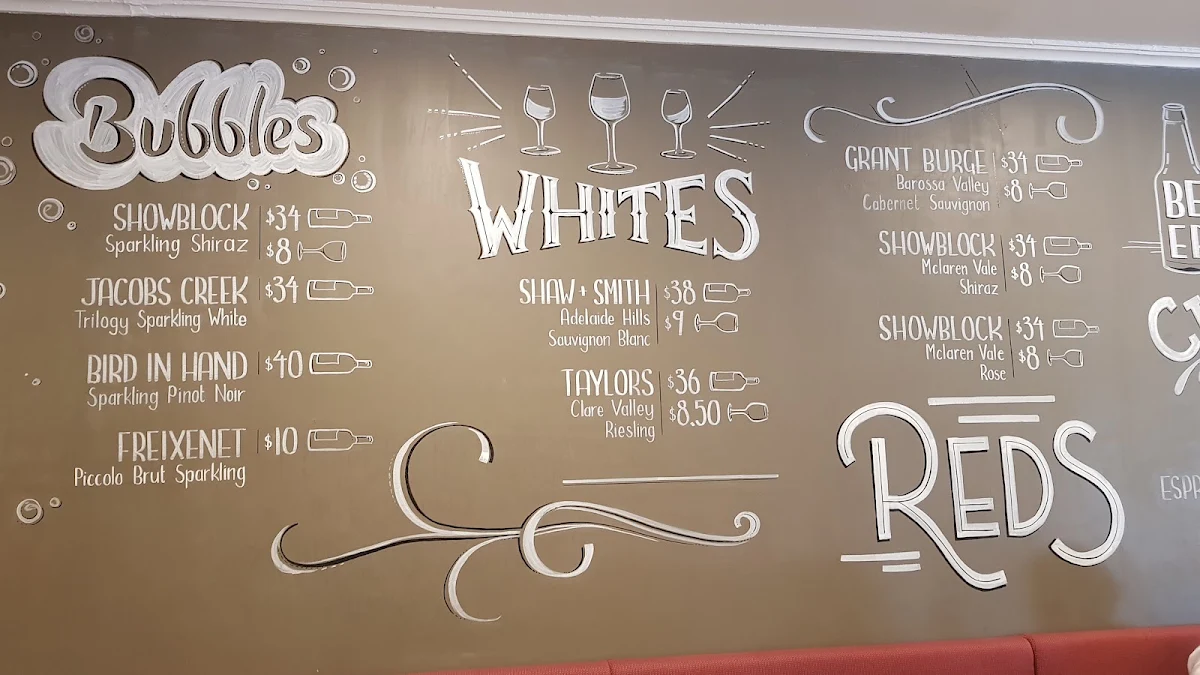 Bubbles
SHOWBLOCK $34
Sparkling Shiraz $8
JACOBS CREEK $34
Trilogy Sparkling White
BIRD IN HAND $40
Sparkling Pinot Noir
FREIXENET $10
Piccolo Brut Sparkling
WHITES
SHAW + SMITH $38
Adelaide Hills $9
Sauvignon Blanc
TAYLORS $36
Clare Valley $8.50
Riesling
GRANT BURGE $34
Barossa Valley $8
Cabernet Sauvignon
SHOWBLOCK $34
Mclaren Vale $8
Shiraz
SHOWBLOCK $34
Mclaren Vale $8
Rose
REDS